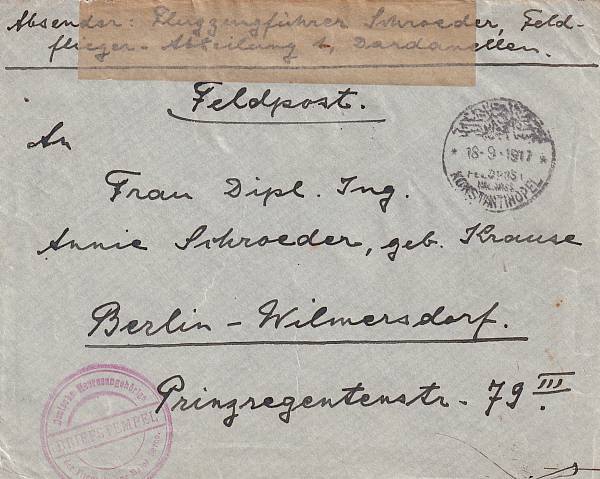 Absender: Flugzeugführer Schroeder, Feld-
flieger-Abteilung 6, Dardanellen.
Feldpost.
An
* 18-9-1917 *
FELDPOST
KONSTANTINOPEL
Frau Dipl. Ing.
Annie Schroeder, geb. Krause
Berlin-Wilmersdorf.
Prinzregentenstr. 79 III.
BRIEFSTEMPEL